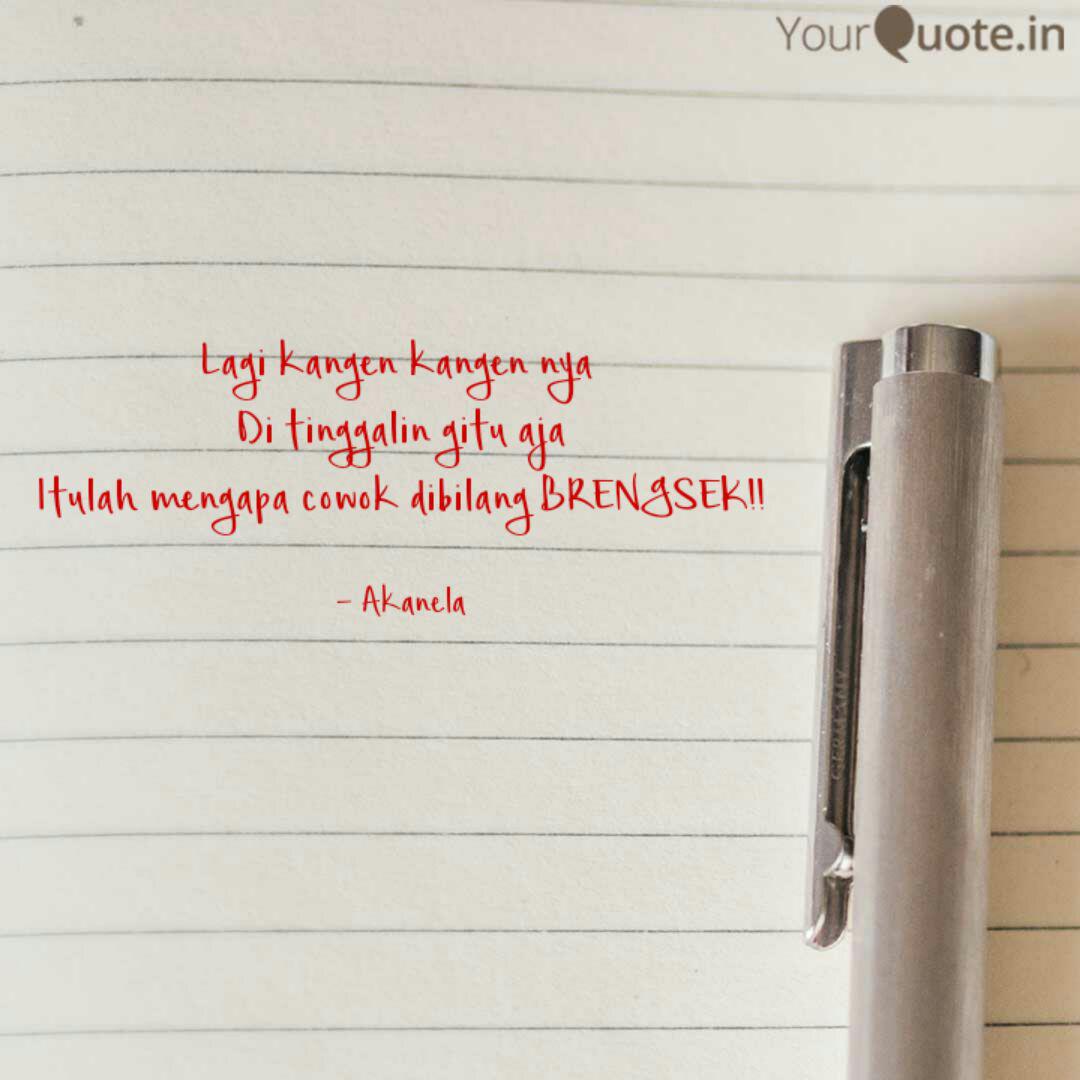 YourQuote.in
Lagi kangen kangen nya
Di tinggalin gitu aja
Itulah mengapa cowok dibilang BRENGSEK!!
- Akanela
GERMANY